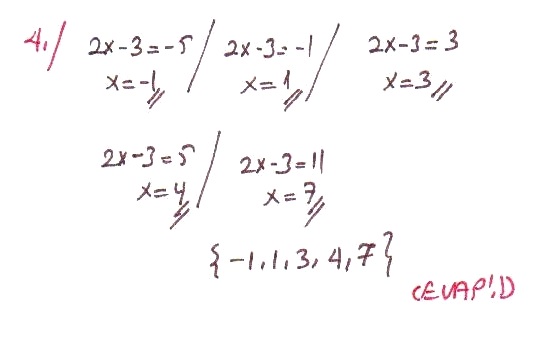 4./ 2x-3=-5 / 2x-3=-1 / 2x-3=3
x=-1 x=1 x=3
2x-3=5 / 2x-3=11
x=4 x=7
{-1,1,3,4,7}
CEVAP:D